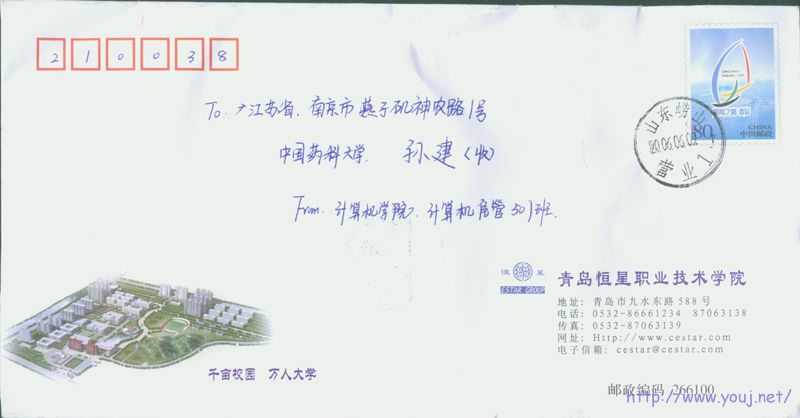 210038
QINGDAO
SAILING CITY
帆船之都 青岛
80
CHINA
中国邮政
山东崂山
营业1
To: 江苏省、南京市燕子矶神农路1号
中国药科大学. 孙建(收)
From. 计算机学院、计算机 501班.
恒 星
ESTAR GROUP
青岛恒星职业技术学院
地址: 青岛市九水东路588号
电话: 0532-86661234 87063138
传真: 0532-87063139
网址: Http://www.cestar.com
电子信箱: cestar@cestar.com
千亩校园 万人大学
邮政编码 266100
http://www.youj.net/